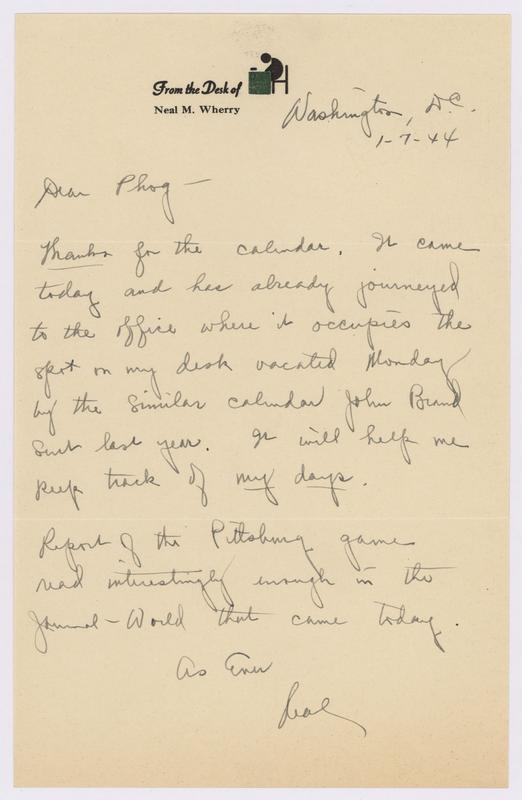 From the Desk of
Neal M. Wherry
Washington, D.C.
1-7-44
Dear Phog —
Thanks for the calendar. It came
today and has already journeyed
to the office where it occupies the
spot on my desk vacated Monday
by the similar calendar John Brand
sent last year. It will help me
keep track of my days.
Report of the Pittsburg game
read interestingly enough in the
Journal-World that came today.
As Ever
Neal